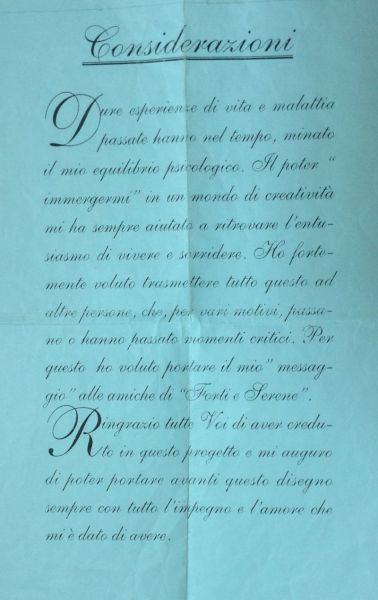 Considerazioni
Dure esperienze di vita e malattia
passate hanno nel tempo, minato
il mio equilibrio psicologico. Il poter "
immergermi" in un mondo di creatività
mi ha sempre aiutato a ritrovare l'entu-
siasmo di vivere e sorridere. Ho forte-
mente voluto trasmettere tutto questo ad
altre persone, che, per vari motivi, passa-
no o hanno passato momenti critici. Per
questo ho voluto portare il mio" messag-
gio" alle amiche di "Forti e Serene".
Ringrazio tutte Voi di aver credu-
to in questo progetto e mi auguro
di poter portare avanti questo disegno
sempre con tutto l'impegno e l'amore che
mi è dato di avere.